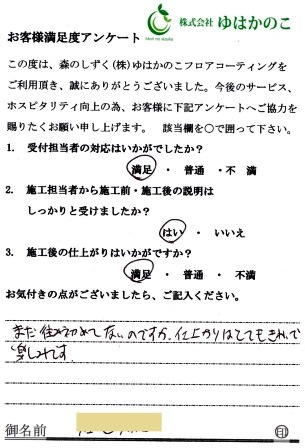 株式会社 ゆはかのこ
Mori no shizuku
お客様満足度アンケート
この度は、森のしずく(株)ゆはかのこフロアコーティングを
ご利用頂き、誠にありがとうございました。今後のサービス、
ホスピタリティ向上の為、お客様に下記アンケートへご協力を
賜りたくお願い申し上げます。 該当欄を○で囲って下さい。
1. 受付担当者の対応はいかがでしたか？
満足 ・ 普通 ・ 不満
2. 施工担当者から施工前・施工後の説明は
しっかりと受けましたか？
はい ・ いいえ
3. 施工後の仕上がりはいかがですか？
満足 ・ 普通 ・ 不満
お気付きの点がございましたら、ご記入ください。
まだ住み初めてないのですが、仕上がりはとてもきれいで
楽しみです
御名前
印